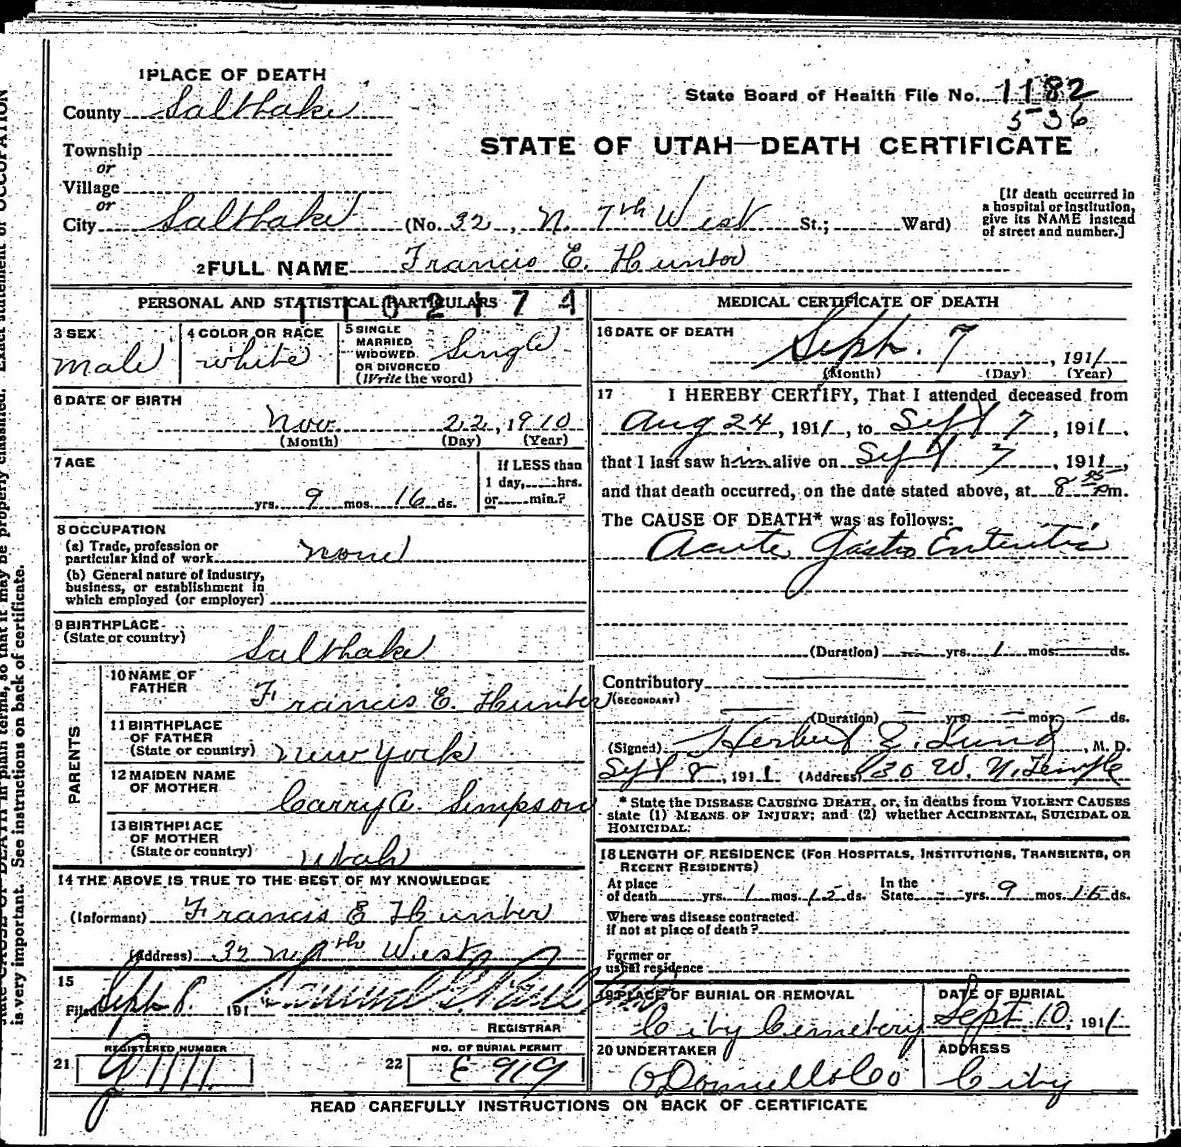 1 PLACE OF DEATH
County Salt Lake
State Board of Health File No. 1182
5-36
Township
or
Village
or
STATE OF UTAH—DEATH CERTIFICATE
City Salt Lake (No. 32, N. 7th West St.; Ward)
[If death occurred in
a hospital or institution,
give its NAME instead
of street and number.]
2 FULL NAME Francis E. Hunter
PERSONAL AND STATISTICAL PARTICULARS
1102174
3 SEX
male
4 COLOR OR RACE
white
5 SINGLE
MARRIED
WIDOWED
OR DIVORCED
(Write the word)
Single
6 DATE OF BIRTH
Nov. 22, 1910
(Month) (Day) (Year)
7 AGE
yrs. 9 mos. 16 ds.
If LESS than
1 day, hrs.
or min.?
8 OCCUPATION
(a) Trade, profession or
particular kind of work none
(b) General nature of industry,
business, or establishment in
which employed (or employer)
9 BIRTHPLACE
(State or country)
Salt Lake
PARENTS
10 NAME OF
FATHER
Francis E. Hunter
11 BIRTHPLACE
OF FATHER
(State or country) New York
12 MAIDEN NAME
OF MOTHER
Carry A. Simpson
13 BIRTHPLACE
OF MOTHER
(State or country) Utah
14 THE ABOVE IS TRUE TO THE BEST OF MY KNOWLEDGE
(Informant) Francis E Hunter
(Address) 32 N 7th West
15
Filed Sept 8, 191
REGISTRAR
21 REGISTERED NUMBER
22 NO. OF BURIAL PERMIT
E 919
MEDICAL CERTIFICATE OF DEATH
16 DATE OF DEATH
Sept. 7, 1911
(Month) (Day) (Year)
17 I HEREBY CERTIFY, That I attended deceased from
Aug 24, 1911, to Sept 7, 1911,
that I last saw him alive on Sept 7, 1911,
and that death occurred, on the date stated above, at 8 pm.
The CAUSE OF DEATH* was as follows:
Acute Gastro Enteritis
(Duration) — yrs. 1 mos. — ds.
Contributory
(SECONDARY)
(Duration) — yrs. — mos. — ds.
(Signed) Herbert Z. Lund, M. D.
Sept 8, 1911 (Address) 130 W. N. Temple
* State the DISEASE CAUSING DEATH, or, in deaths from VIOLENT CAUSES
state (1) MEANS OF INJURY; and (2) whether ACCIDENTAL, SUICIDAL OR
HOMICIDAL.
18 LENGTH OF RESIDENCE (FOR HOSPITALS, INSTITUTIONS, TRANSIENTS, OR
RECENT RESIDENTS)
At place
of death yrs. 1 mos. 15 ds.
In the
State — yrs. 9 mos. 16 ds.
Where was disease contracted.
if not at place of death?
Former or
usual residence
19 PLACE OF BURIAL OR REMOVAL
City Cemetery
DATE OF BURIAL
Sept 10, 1911
20 UNDERTAKER
O'Donnell & Co
ADDRESS
City
READ CAREFULLY INSTRUCTIONS ON BACK OF CERTIFICATE
is very important. See instructions on back of certificate.